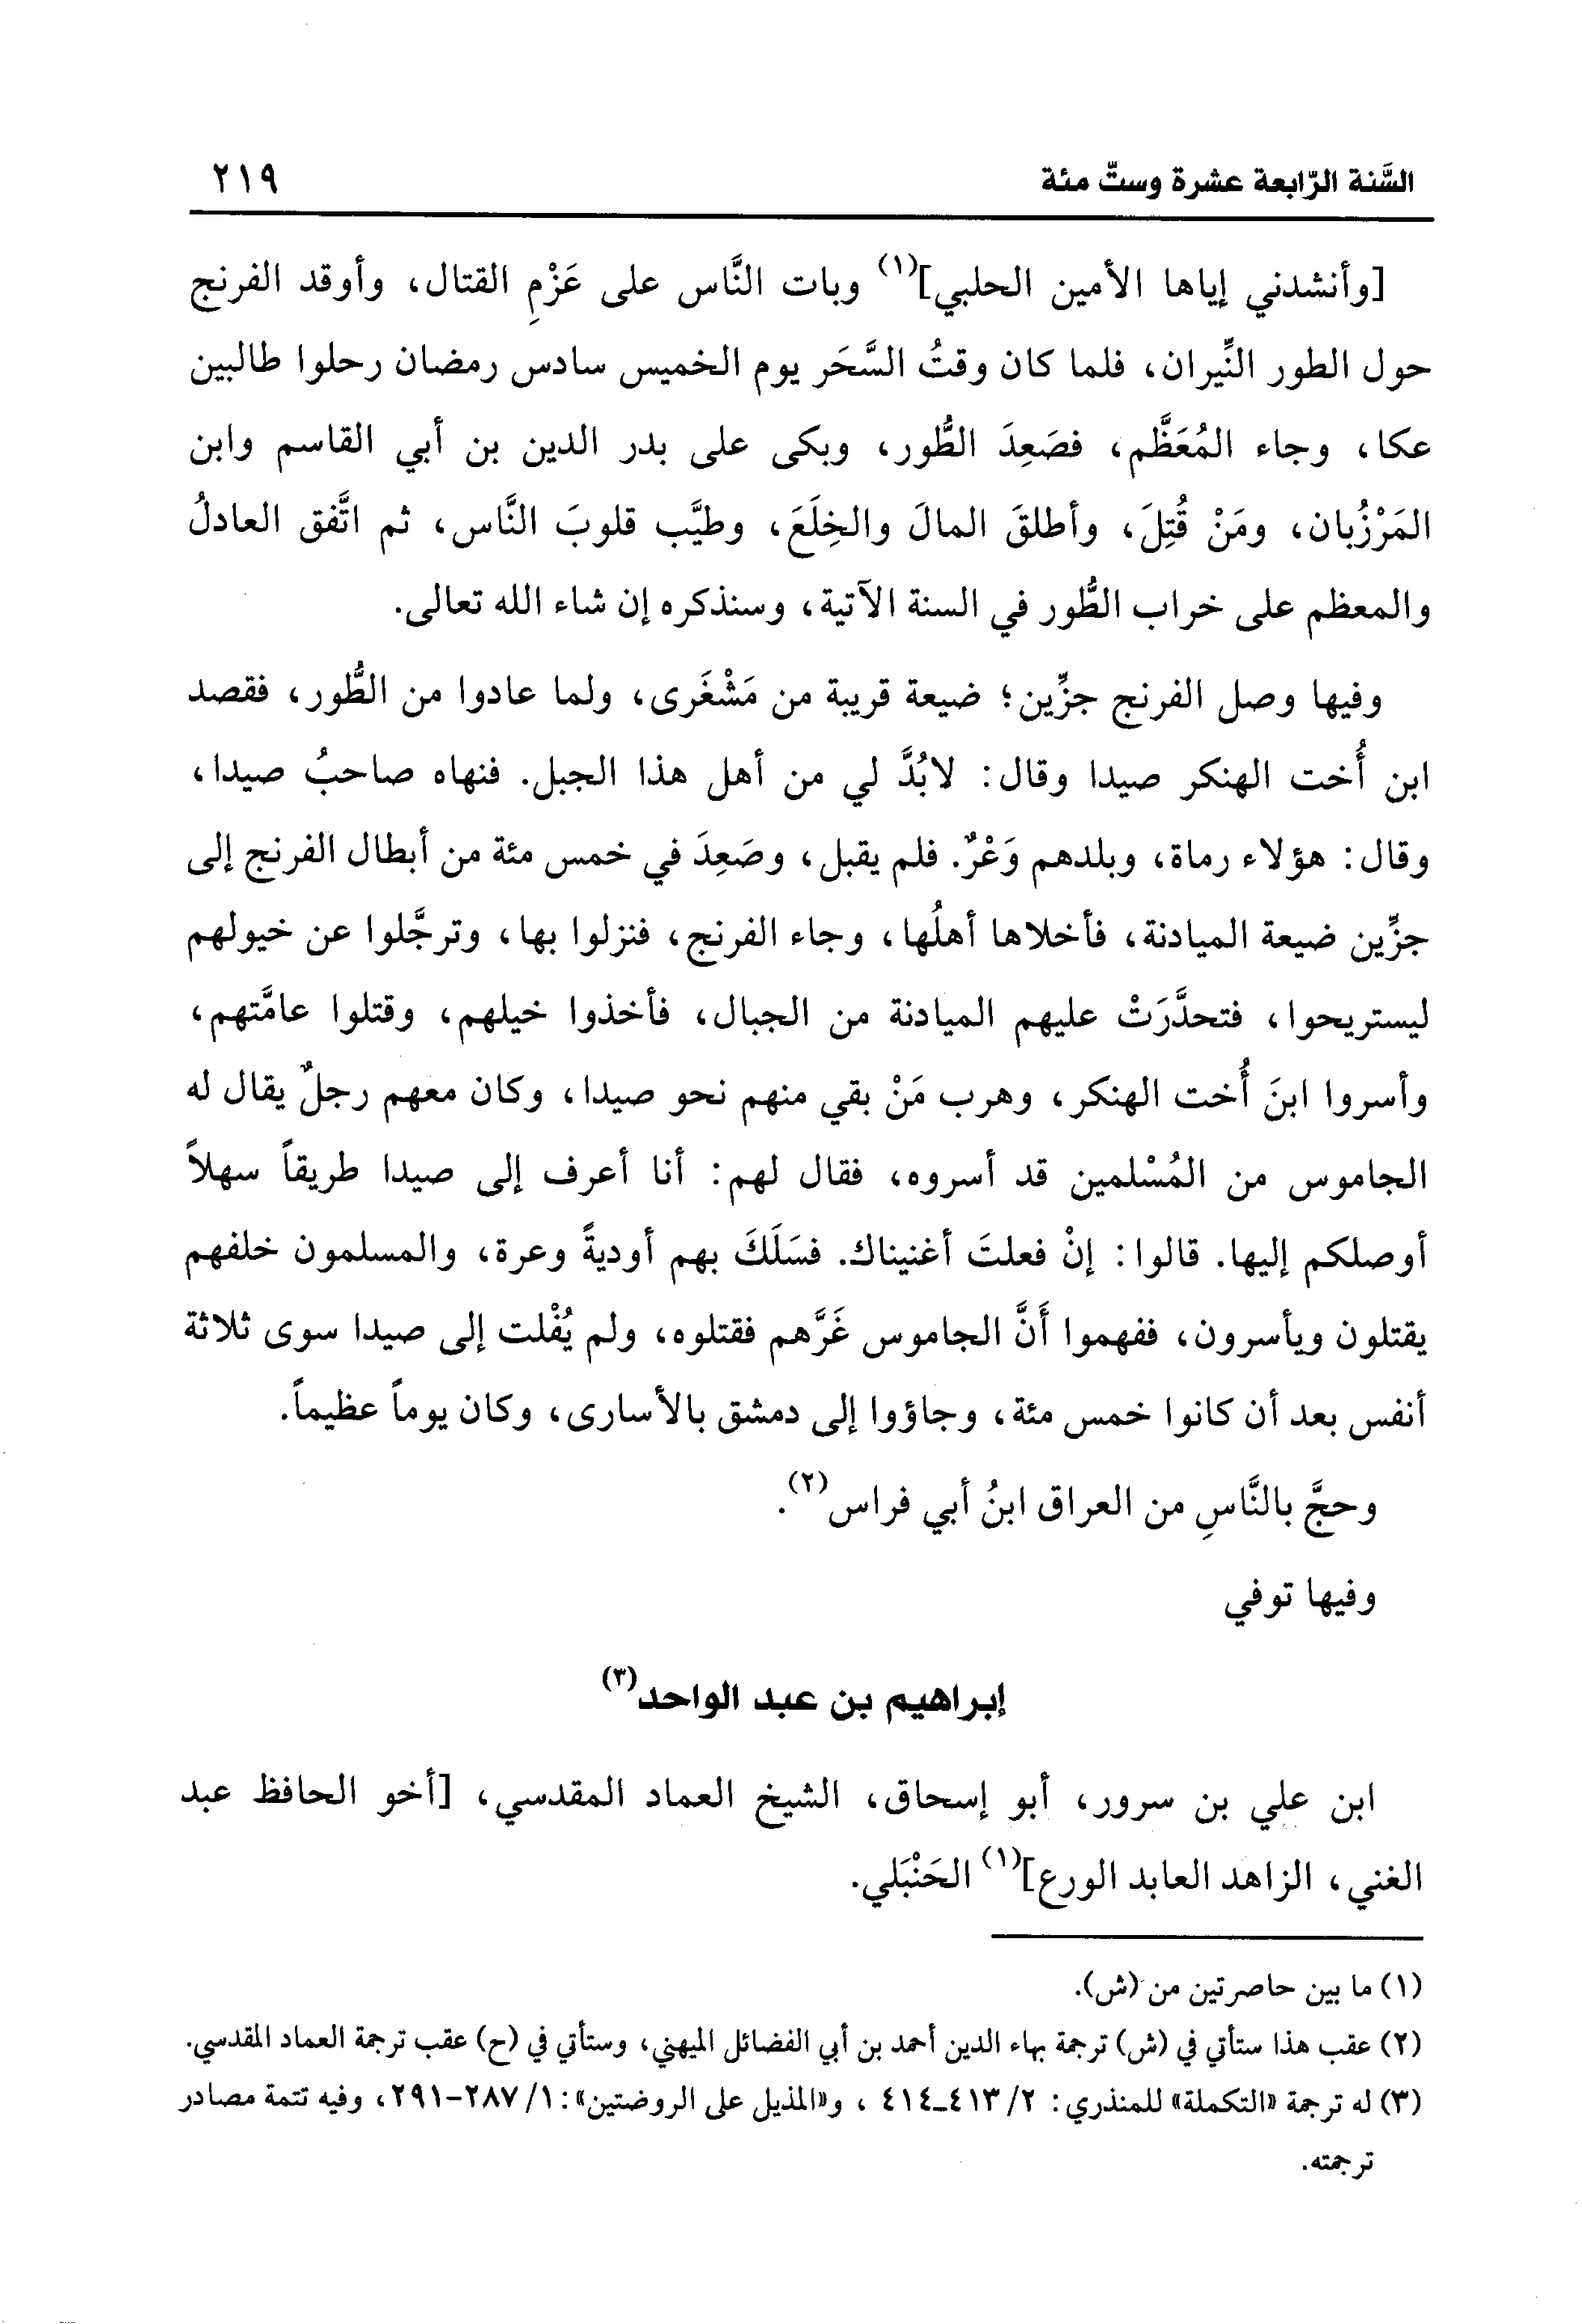 السَّنة الرّابعة عشرة وستّ مئة ٢١٩
[وأنشدني إياها الأمين الحلبي](١) وبات النَّاس على عَزْمِ القتال، وأوقد الفرنج
حول الطور النِّيران، فلما كان وقتُ السَّحَر يوم الخميس سادس رمضان رحلوا طالبين
عكا، وجاء المُعَظَّم، فصَعِدَ الطُّور، وبكى على بدر الدين بن أبي القاسم وابن
المَرْزُبان، ومَنْ قُتِلَ، وأطلقَ المالَ والخِلَعَ، وطيَّب قلوبَ النَّاس، ثم اتَّفق العادلُ
والمعظم على خراب الطُّور في السنة الآتية، وسنذكره إن شاء الله تعالى.
وفيها وصل الفرنج جزِّين؛ ضيعة قريبة من مَشْغَرى، ولما عادوا من الطُّور، فقصد
ابن أُخت الهنكر صيدا وقال: لابُدَّ لي من أهل هذا الجبل. فنهاه صاحبُ صيدا،
وقال: هؤلاء رماة، وبلدهم وَعْرٌ. فلم يقبل، وصَعِدَ في خمس مئة من أبطال الفرنج إلى
جزِّين ضيعة الميادنة، فأخلاها أهلُها، وجاء الفرنج، فنزلوا بها، وترجَّلوا عن خيولهم
ليستريحوا، فتحدَّرَتْ عليهم الميادنة من الجبال، فأخذوا خيلهم، وقتلوا عامَّتهم،
وأسروا ابنَ أُخت الهنكر، وهرب مَنْ بقي منهم نحو صيدا، وكان معهم رجلٌ يقال له
الجاموس من المُسْلمين قد أسروه، فقال لهم: أنا أعرف إلى صيدا طريقاً سهلاً
أوصلكم إليها. قالوا: إنْ فعلتَ أغنيناك. فسَلَكَ بهم أوديةً وعرة، والمسلمون خلفهم
يقتلون ويأسرون، ففهموا أَنَّ الجاموس غَرَّهم فقتلوه، ولم يُفْلت إلى صيدا سوى ثلاثة
أنفس بعد أن كانوا خمس مئة، وجاؤوا إلى دمشق بالأسارى، وكان يوماً عظيماً.
وحجَّ بالنَّاسِ من العراق ابنُ أبي فراس(٢).
وفيها توفي
إبراهيم بن عبد الواحد(٣)
ابن علي بن سرور، أبو إسحاق، الشيخ العماد المقدسي، [أخو الحافظ عبد
الغني، الزاهد العابد الورع](١) الحَنْبَلي.
(١) ما بين حاصرتين من (ش).
(٢) عقب هذا ستأتي في (ش) ترجمة بهاء الدين أحمد بن أبي الفضائل الميهني، وستأتي في (ح) عقب ترجمة العماد المقدسي.
(٣) له ترجمة «التكملة» للمنذري: ٢/ ٤١٣ـ٤١٤، و«المذيل على الروضتين»: ١/ ٢٨٧-٢٩١، وفيه تتمة مصادر
ترجمته.